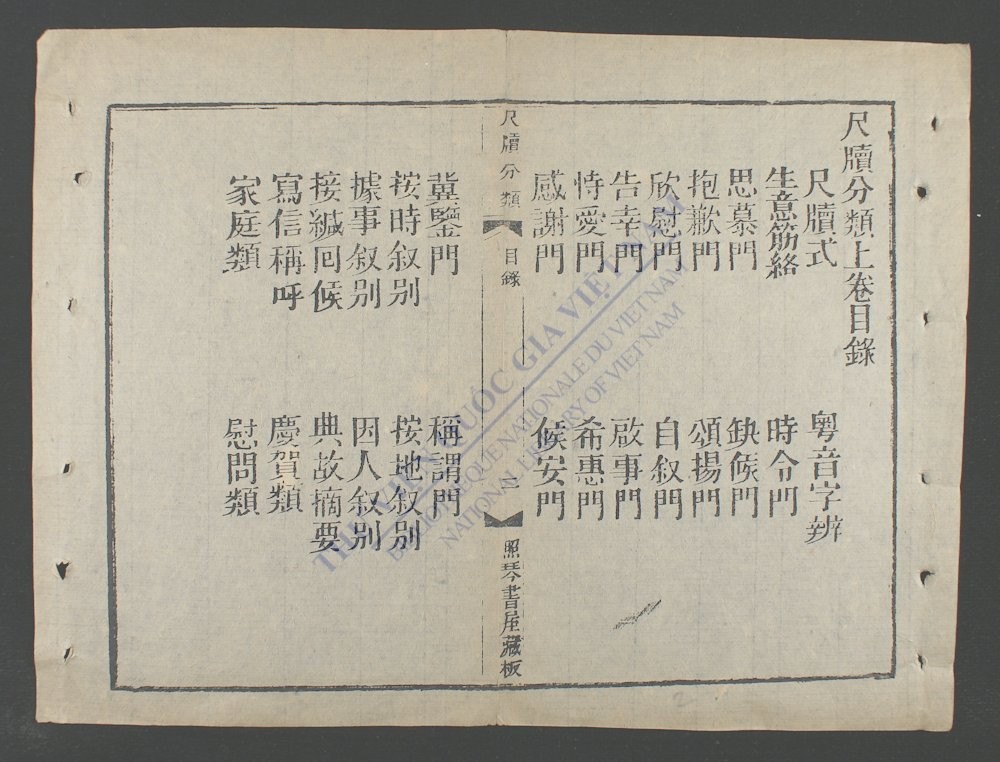 尺牘分類上卷目錄
尺牘式 粵音字辨
生意筋絡 時令門
思慕門 缺候門
抱歉門 頌揚門
欣慰門 自叙門
告幸門 啟事門
恃愛門 希惠門
感謝門 候安門
尺牘分類 目錄 一 照琴書屋藏板
冀鑒門 稱謂門
按時叙别 按地叙别
據事叙别 因人叙别
接緘囘候 典故摘要
寫信稱呼 慶賀類
家庭類 慰問類
THƯ VIỆN QUỐC GIA VIỆT NAM
BIBLIOTHEQUE NATIONALE DU VIETNAM
NATIONAL LIBRARY OF VIETNAM
2